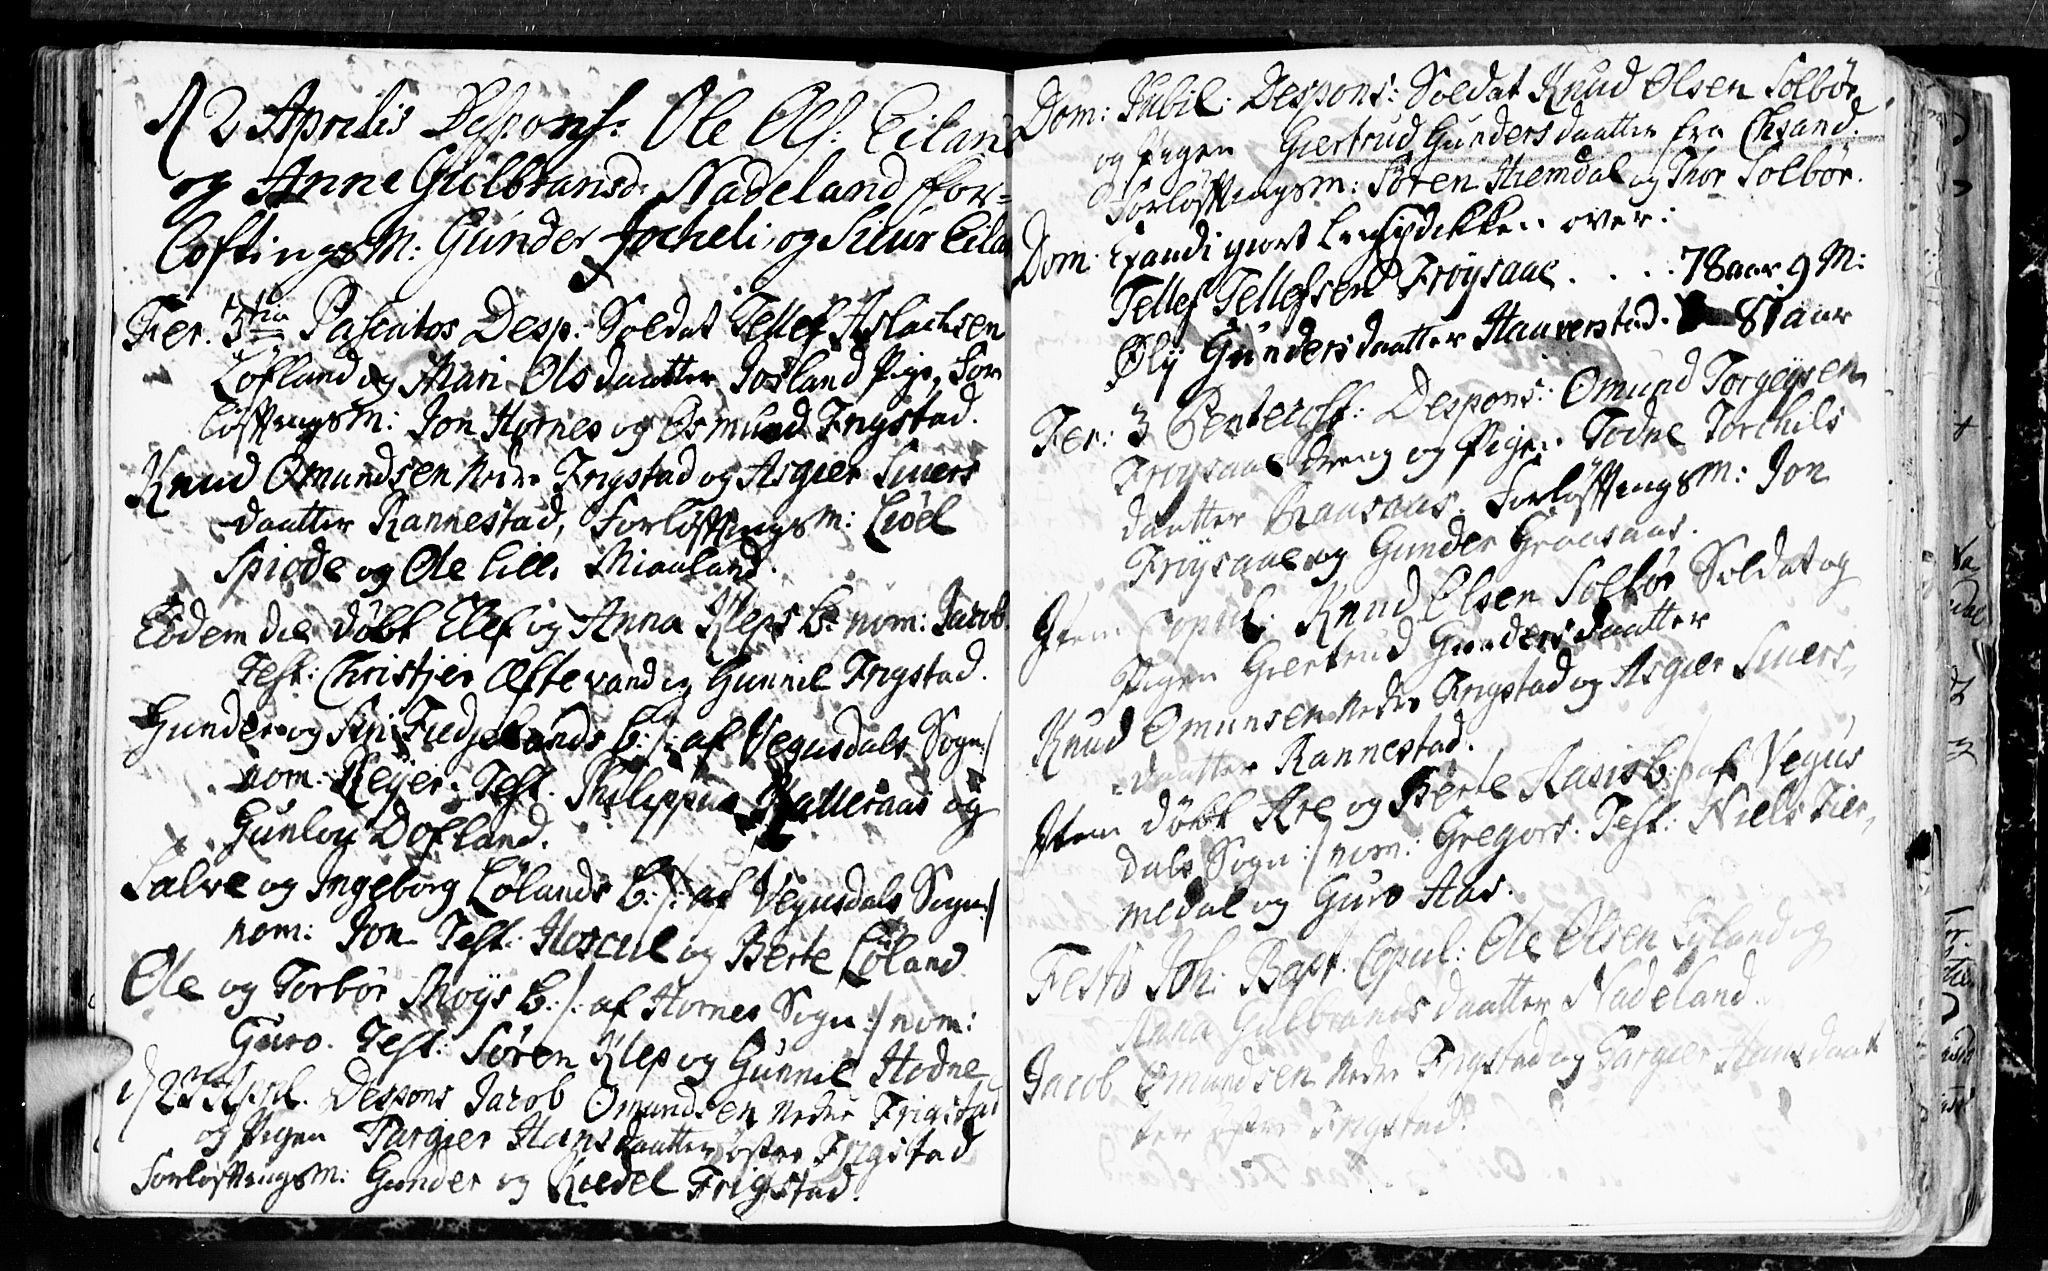 d 2 Aprilis Despons: Ole Ols: Eiland
og Anne Gulbransd: Nadeland ffor=
loftingsm: Gunder Jocheli og Siur Eila
Fer. 3tia Paschatos Desp: Soldat Tellef Aslachsen
Løfland og Mari Olsdaatter Josland Pige, For
løftingsm: Jon Hornes og Osmund Frigstad.
Knud Omundsen Nedre Frigstad og Asgier Siuers
daatter Rannestad, Forløftingsm: Kiøl
Spiode og Ole Lille Miaaland.
Eodem die døbt Elef og Anna Kleps b: nom: Jacob.
Test: Christjer Eftevand og Gunnil Frigstad.
Gunder og Siri Fidjelands b: /: af Vegusdals Sogn:/
nom: Reyer. Test. Philippus Hatteraas og
Gunlou Dofland.
Salve og Ingeborg Løland b: /: af Vegusdals Sogn:/
nom: Jon Test: Hoscul og Berte Løland
Ole og Torbør Moys b: /: af Hornes Sogn:/ nom:
Guro. Test: Søren Klep og Gunnil Hodne
d 23 April. Despons Jacob Omundsen Nedre Frigstad
og Pigen Targier Hansdaatter østre Frigstad
Forløftingsm: Gunder og Kiedel Frigstad.
Dom: Jubil: Despons: Soldat Knud Olsen Solbør
og Pigen Giertrud Gundersdaatter fra Chsand.
Forløftingsm: Søren Hiemdal og Thor Solbør.
Dom: Exaudi giort over:
Tellef Tellefsen Frøysaae . . . . 78 aar 9 M:
Øly Gundersdaatter Hauverstad. 81 aar
Fer: 3 Pentecost: Despons: Omund Torgeysen
Frøysaae dreng og Pigen Todne Torchils
daatter Graasaas. Forløftingsm: Jon
Frøysaae og Gunder Graasaas.
Item Copul: Knud Olsen Solbør Soldat og
Pigen Giertrud Gundersdaatter
Knud Omunsen Nedre Frigstad og Asgier Siuers
daatter Rannestad.
Item døbt Are og Berte Aasis b: /: af Vegus
dals Sogn:/ nom: Gregors. Test: Niels Tier,
medal og Guro Aas.
Festo Joh: Bapt. Copul: Ole Olsen Eyland og
Anna Gulbrandsdaatter Nadeland.
Jacob Omundsen Nedre Frigstad og Targier Hansdaat
ter Frigstad.